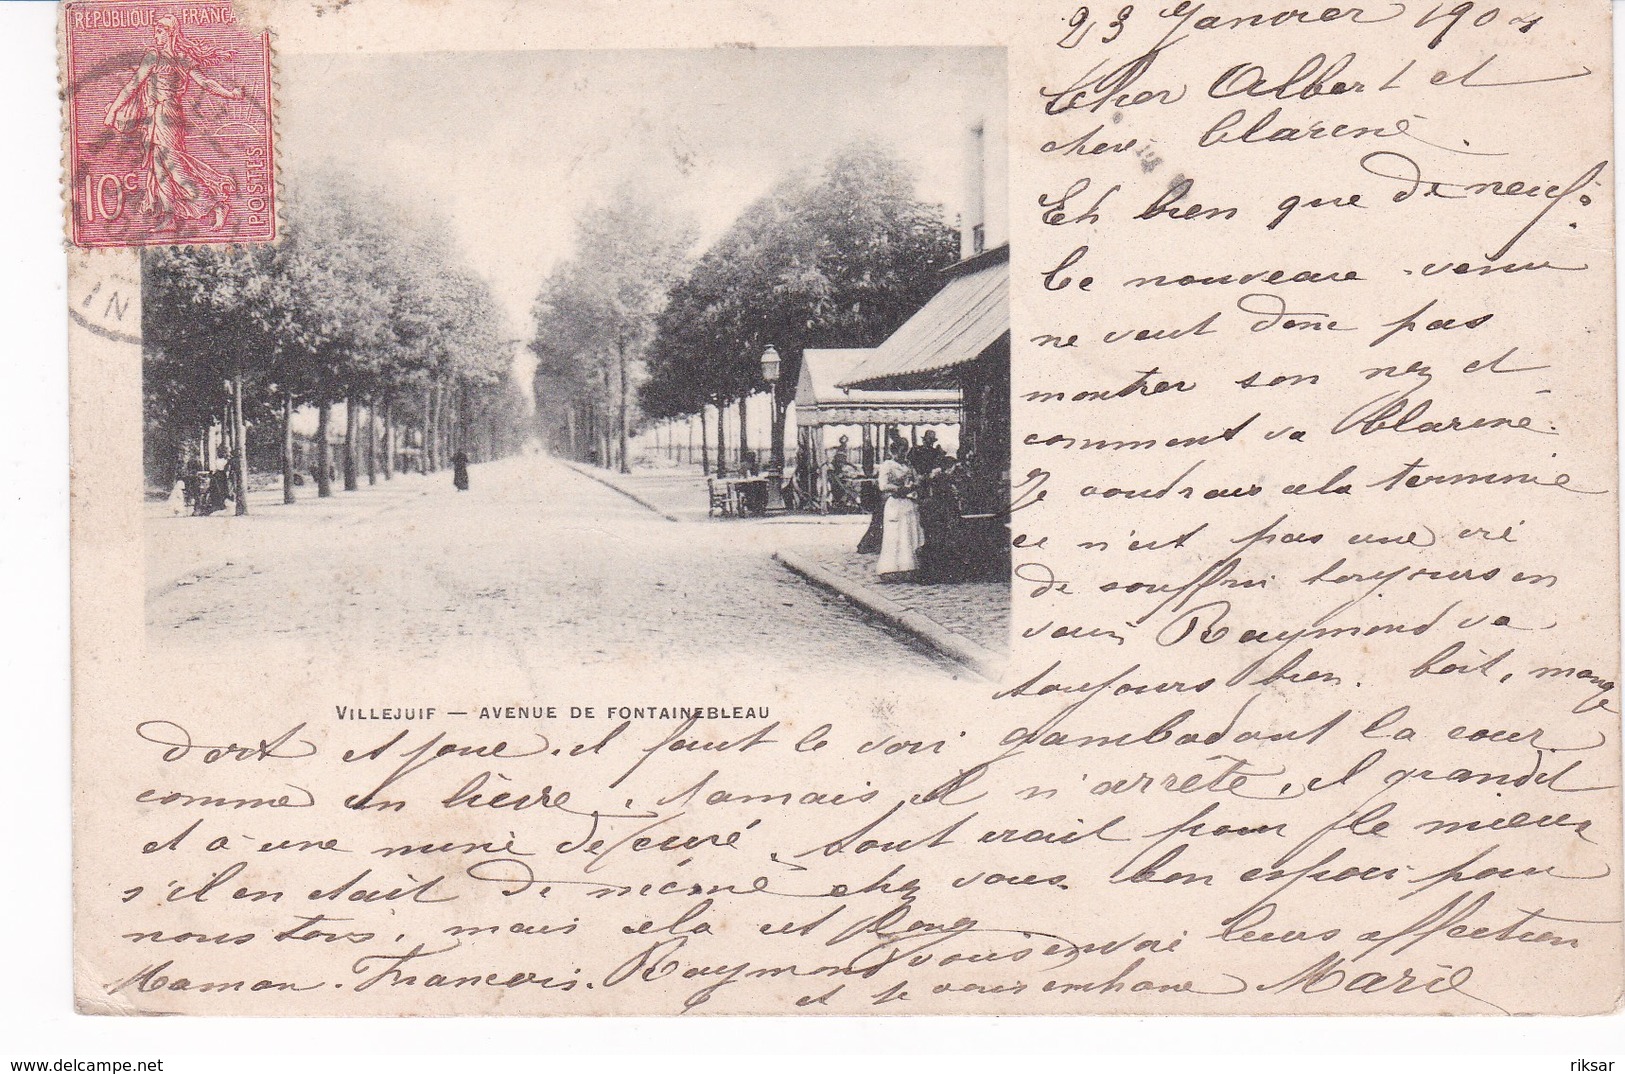 RÉPUBLIQUE FRANÇA
10c
POSTES
23 Janvier 1904
Cher Albert et
chere Clarene
Eh bien que de neuf?
Ce nouveau venu
ne veut donc pas
montrer son nez et
comment va Clarene.
Je voudrais cela terminé
ce n'est pas une vie
de souffrir toujours en
vain Raymond va
toujours bien. boit, mange
VILLEJUIF — AVENUE DE FONTAINEBLEAU
dort et joue. il faut le voir gambadant la cour
comme un lièvre. Jamais il n'arrête, il grandit
et a une mine de curé. tout irait pour le mieux
s'il en était de même chez vous. bon espoir pour
nous tous, mais cela est long
Maman. Francois. Raymond vous envoi leurs affection
et je vous embrasse Marie
riksar
www.delcampe.net